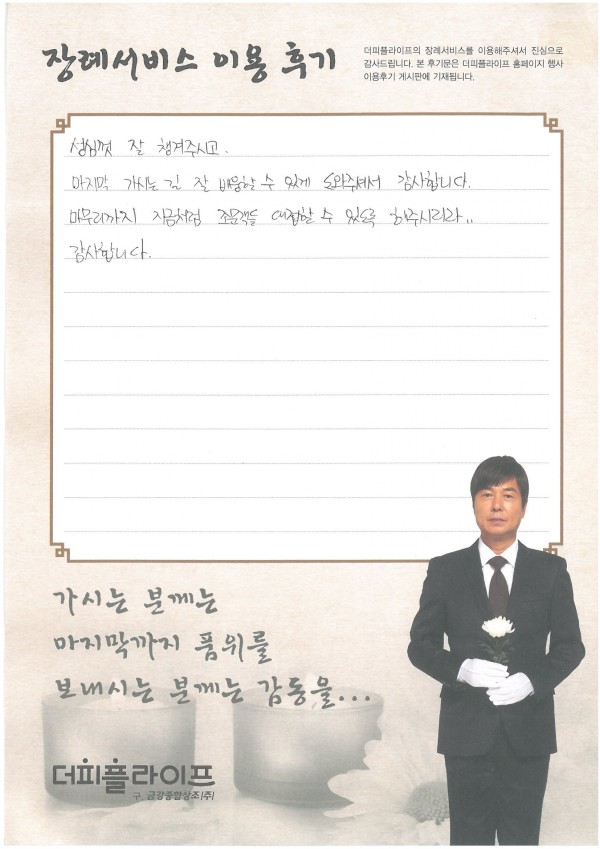 장례서비스 이용 후기
더피플라이프의 장례서비스를 이용해주셔서 진심으로
감사드립니다. 본 후기문은 더피플라이프 홈페이지 행사
이용후기 게시판에 기재됩니다.
성심껏 잘 챙겨주시고.
마지막 가시는 길 잘 배웅할 수 있게 도와주셔서 감사합니다.
마무리까지 지금처럼 조문객들 대접할 수 있도록 해주시리라..
감사합니다.
가시는 분께는
마지막까지 품위를
보내시는 분께는 감동을...
더피플라이프
구. 금강종합상조(주)